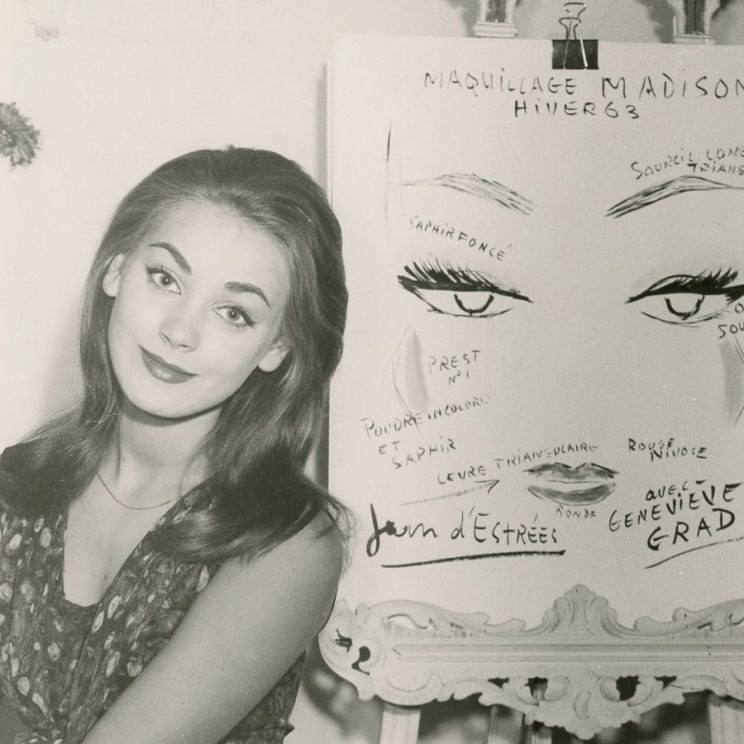 MAQUILLAGE MADISON
HIVER 63
SOURCIL LONG
TRIANG
SAPHIR FONCÉ
SOU
PREST
N°1
POUDRE INCOLORE
ET
SAPHIR
LEVRE TRIANGULAIRE
ROUGE
NIVOSE
RONDE
AVEC
GENEVIÈVE
GRAD
Jean d'ESTRÉES